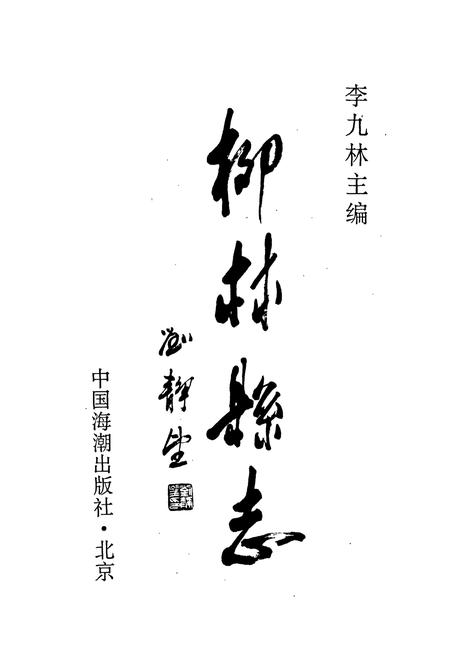 李九林主编
柳林縣志
刘静堂
中国海潮出版社·北京